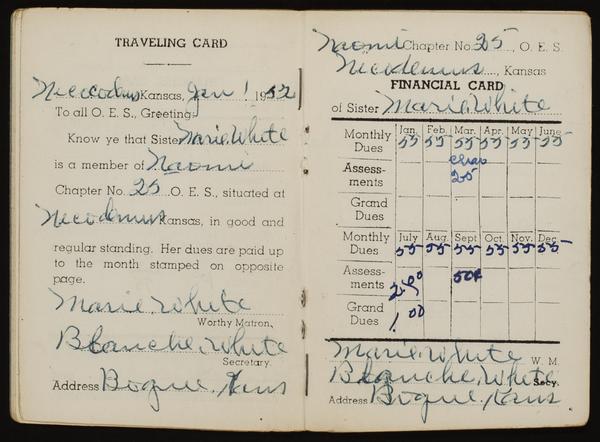 TRAVELING CARD
Nicodemus Kansas, Jan 1 1952
To all O.E.S., Greeting:
Know ye that Sister Marie White
is a member of Naomi
Chapter No. 25 O.E.S., situated at
Nicodemus Kansas, in good and
regular standing. Her dues are paid up
to the month stamped on opposite
page.
Marie White
Worthy Matron,
Blanche White
Secretary.
Address Bogue, Kans
Naomi Chapter No. 25, O. E. S.
Nicodemus, Kansas
FINANCIAL CARD
of Sister Marie White
Monthly Dues Jan. Feb. Mar. Apr. May June
55 55 55 55 55 55
Assessments 25
Grand Dues
Monthly Dues July Aug. Sept Oct. Nov. Dec
55 55 55 55 55 55
Assessments 50¢
Grand Dues 1.00
Marie White W. M.
Blanche White Secy.
Address Bogue, Kans